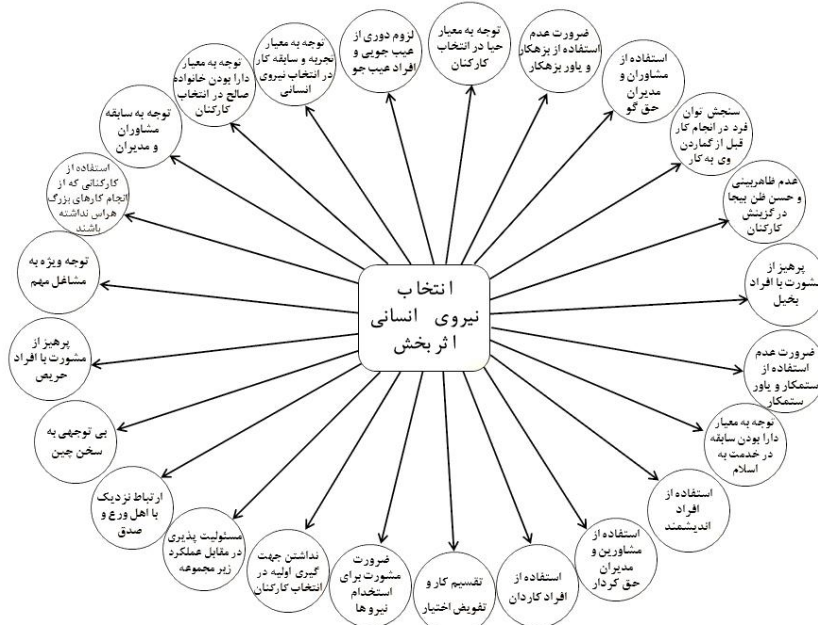 انتخاب
نیروی انسانی
اثربخش
توجه به معیار
حیا در انتخاب
کارکنان
ضرورت عدم
استفاده از بزهکار
و یاور بزهکار
استفاده از
مشاوران و
مدیران
حق گو
سنجش توان
فرد در انجام کار
قبل از گماردن
وی به کار
عدم ظاهربینی
و حسن ظن بیجا
در گزینش
کارکنان
پرهیز از
مشورت با افراد
بخیل
ضرورت عدم
استفاده از
ستمکار و یاور
ستمکار
توجه به معیار
دارا بودن سابقه
در خدمت به
اسلام
استفاده از
افراد
اندیشمند
استفاده از
مشاورین و
مدیران
حق کردار
استفاده از
افراد کاردان
تقسیم کار و
تفویض اختیار
ضرورت
مشورت برای
استخدام
نیروها
نداشتن جهت
گیری اولیه در
انتخاب کارکنان
مسئولیت پذیری
در مقابل عملکرد
زیر مجموعه
ارتباط نزدیک
با اهل ورع و
صدق
بی توجهی به
سخن چین
پرهیز از
مشورت با افراد
حریص
توجه ویژه به
مشاغل مهم
استفاده از
کارکنانی که از
انجام کارهای بزرگ
هراس نداشته
باشند
توجه به سابقه
مشاوران
و مدیران
توجه به معیار
دارا بودن خانواده
صالح در انتخاب
کارکنان
توجه به معیار
تجربه و سابقه کار
در انتخاب نیروی
انسانی
لزوم دوری از
عیب جویی و
افراد عیب جو